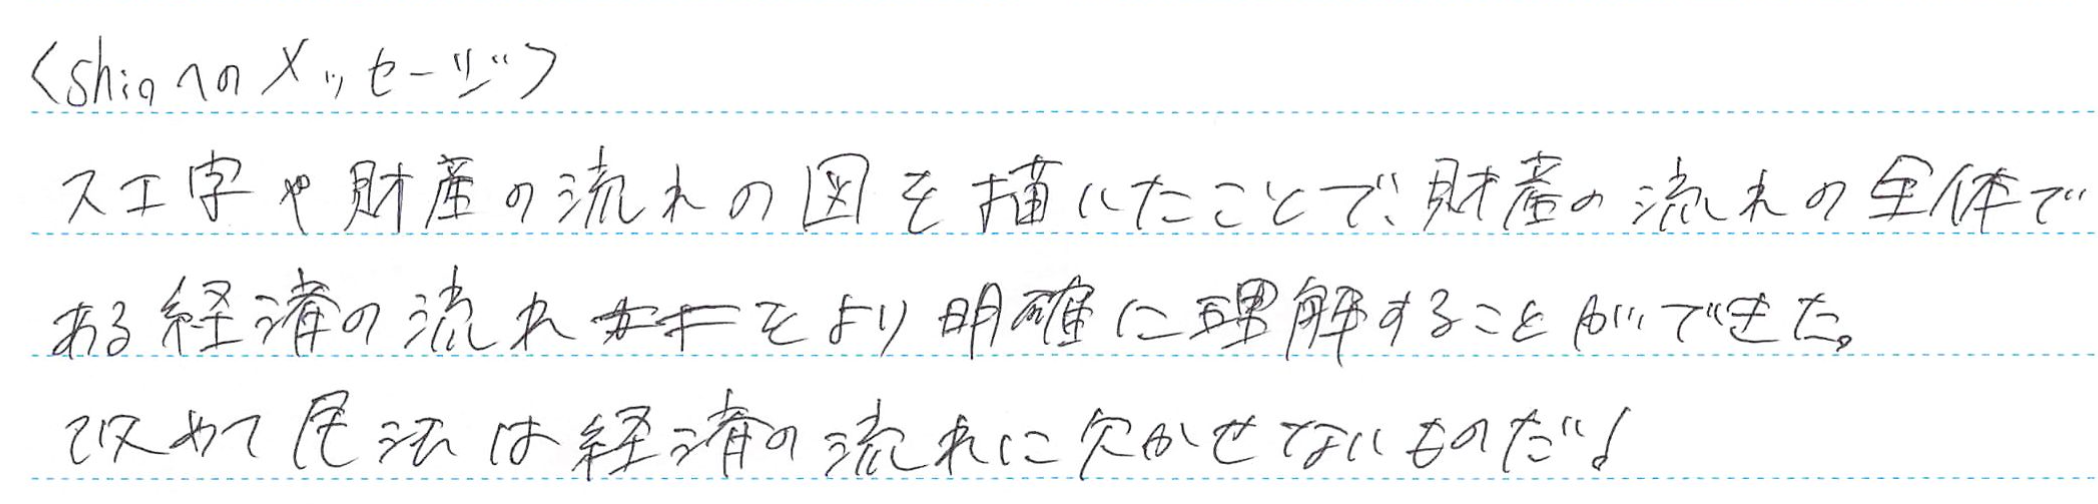 <Shinへのメッセージ>
スエ字や財産の流れの図を描いたことで、財産の流れの全体で
ある経済の流れをより明確に理解することができた。
改めて民法は経済の流れに欠かせないものだ!